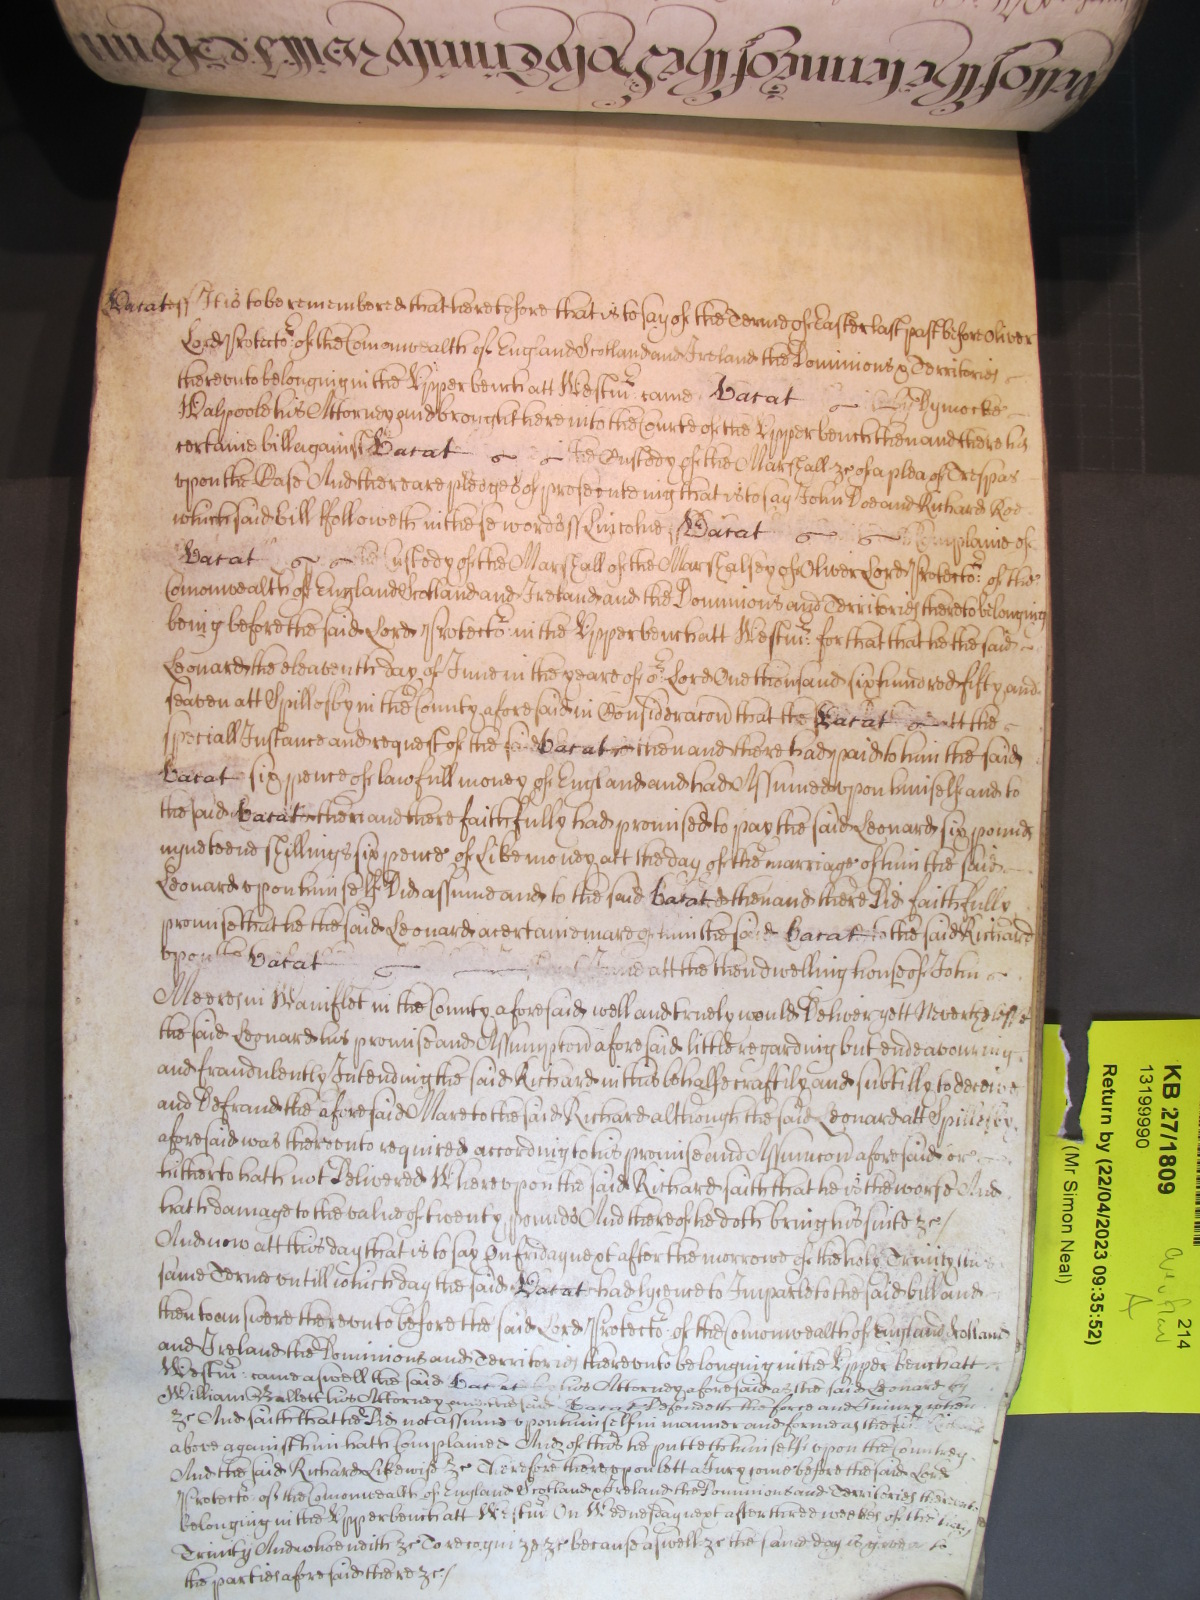 Vacat ss It is to be remembred that heretofore that is to say of the Terme of Easter last past before Oliver
Lord Protector of the Comonwealth of England Scotland and Ireland the Dominions & Territories
thereunto belonging in the Upper bench att Westmr: came Vacat by Dymocke
Walpoole his Attorney and brought here into the Courte of the Upper bench then and there his
certaine bill against Vacat the Custody of the Marshall &c of a plea of Trespas
upon the Case And there are pledges of prosecuteing that is to say John Doe and Richard Roe
which said bill followeth in these words ss Lincolne ss Vacat Complaine of
Vacat the Custody of the Marshall of the Marshalsey of Oliver Lord Protector: of the
Comonwealth of England Scotland and Ireland and the Dominions and Territories thereto belonging
being before the said Lord Protector: in the Upper bench att Westmr: for that that he the said
Leonard the eleaventh day of June in the yeare of or Lord One thousand six hundred fifty and
seaven att Spillesby in the County aforesaid in Consideracon that the Vacat att the
speciall Instance and request of the said Vacat then and there had paid to him the said
Vacat six pence of lawfull money of England and had Assumed upon himselfe and to
the said Vacat then and there faithfully had promised to pay the said Leonard six pounds
nyneteene shillings six pence of Like money att the day of the marriage of him the said
Leonard upon himselfe Did assume and to the said Vacat then and there Did faithfully
promise that he the said Leonard a certaine mare of him the said Vacat to the said Richard
upon the Vacat att the then dwelling house of John
Meeres in Wainflet in the County aforesaid well and truely would Deliver yett Neverthelesse
the said Leonard his promise and Assumpcon aforesaid little regarding but endeavouring
and fraudulently Intending the said Richard in this behalfe craftily and subtilly to deceive
and Defraud the aforesaid Mare to the said Richard although the said Leonard att Spillesby
aforesaid was thereunto required according to his promise and Assumcon aforesaid or
hitherto hath not Delivered Whereupon the said Richard saith that he is the worse And
hath damage to the value of twenty pounds And thereof he doth bring his suite &c/
And now att this day that is to say On friday next after the morrowe of the holy Trinity this
same Terme untill which day the said Vacat had lycence to Imparle to the said bill and
then to answere thereunto before the said Lord Protector: of the Comonwealth of England Scotland
and Ireland the Dominions and Territories thereunto belonging in the Upper bench att
Westmr: came aswell the said Vacat by his Attorney aforesaid as the said Leonard by
William Bellett his Attorney and the said Vacat Defendeth the force and Iniury when
&c And saith that he Did not assume upon himselfe in manner and forme as the said Richard
above against him hath Complained And of this he putteth himselfe upon the Countrey
And the said Richard Likewise &c Therefore thereupon lett a Jury come before the said Lord
Protector: of the Comonwealth of England Scotland & Ireland the Dominions and Territories thereunto
belonging in the Upper bench att Westmr: On Wednesday next after three weekes of the holy
Trinity And who neith &c To recognize &c because aswell &c the same day is given to
the parties aforesaid there &c/
KB 27/1809
13199990
214
Return by (22/04/2023 09:35:52)
(Mr Simon Neal)